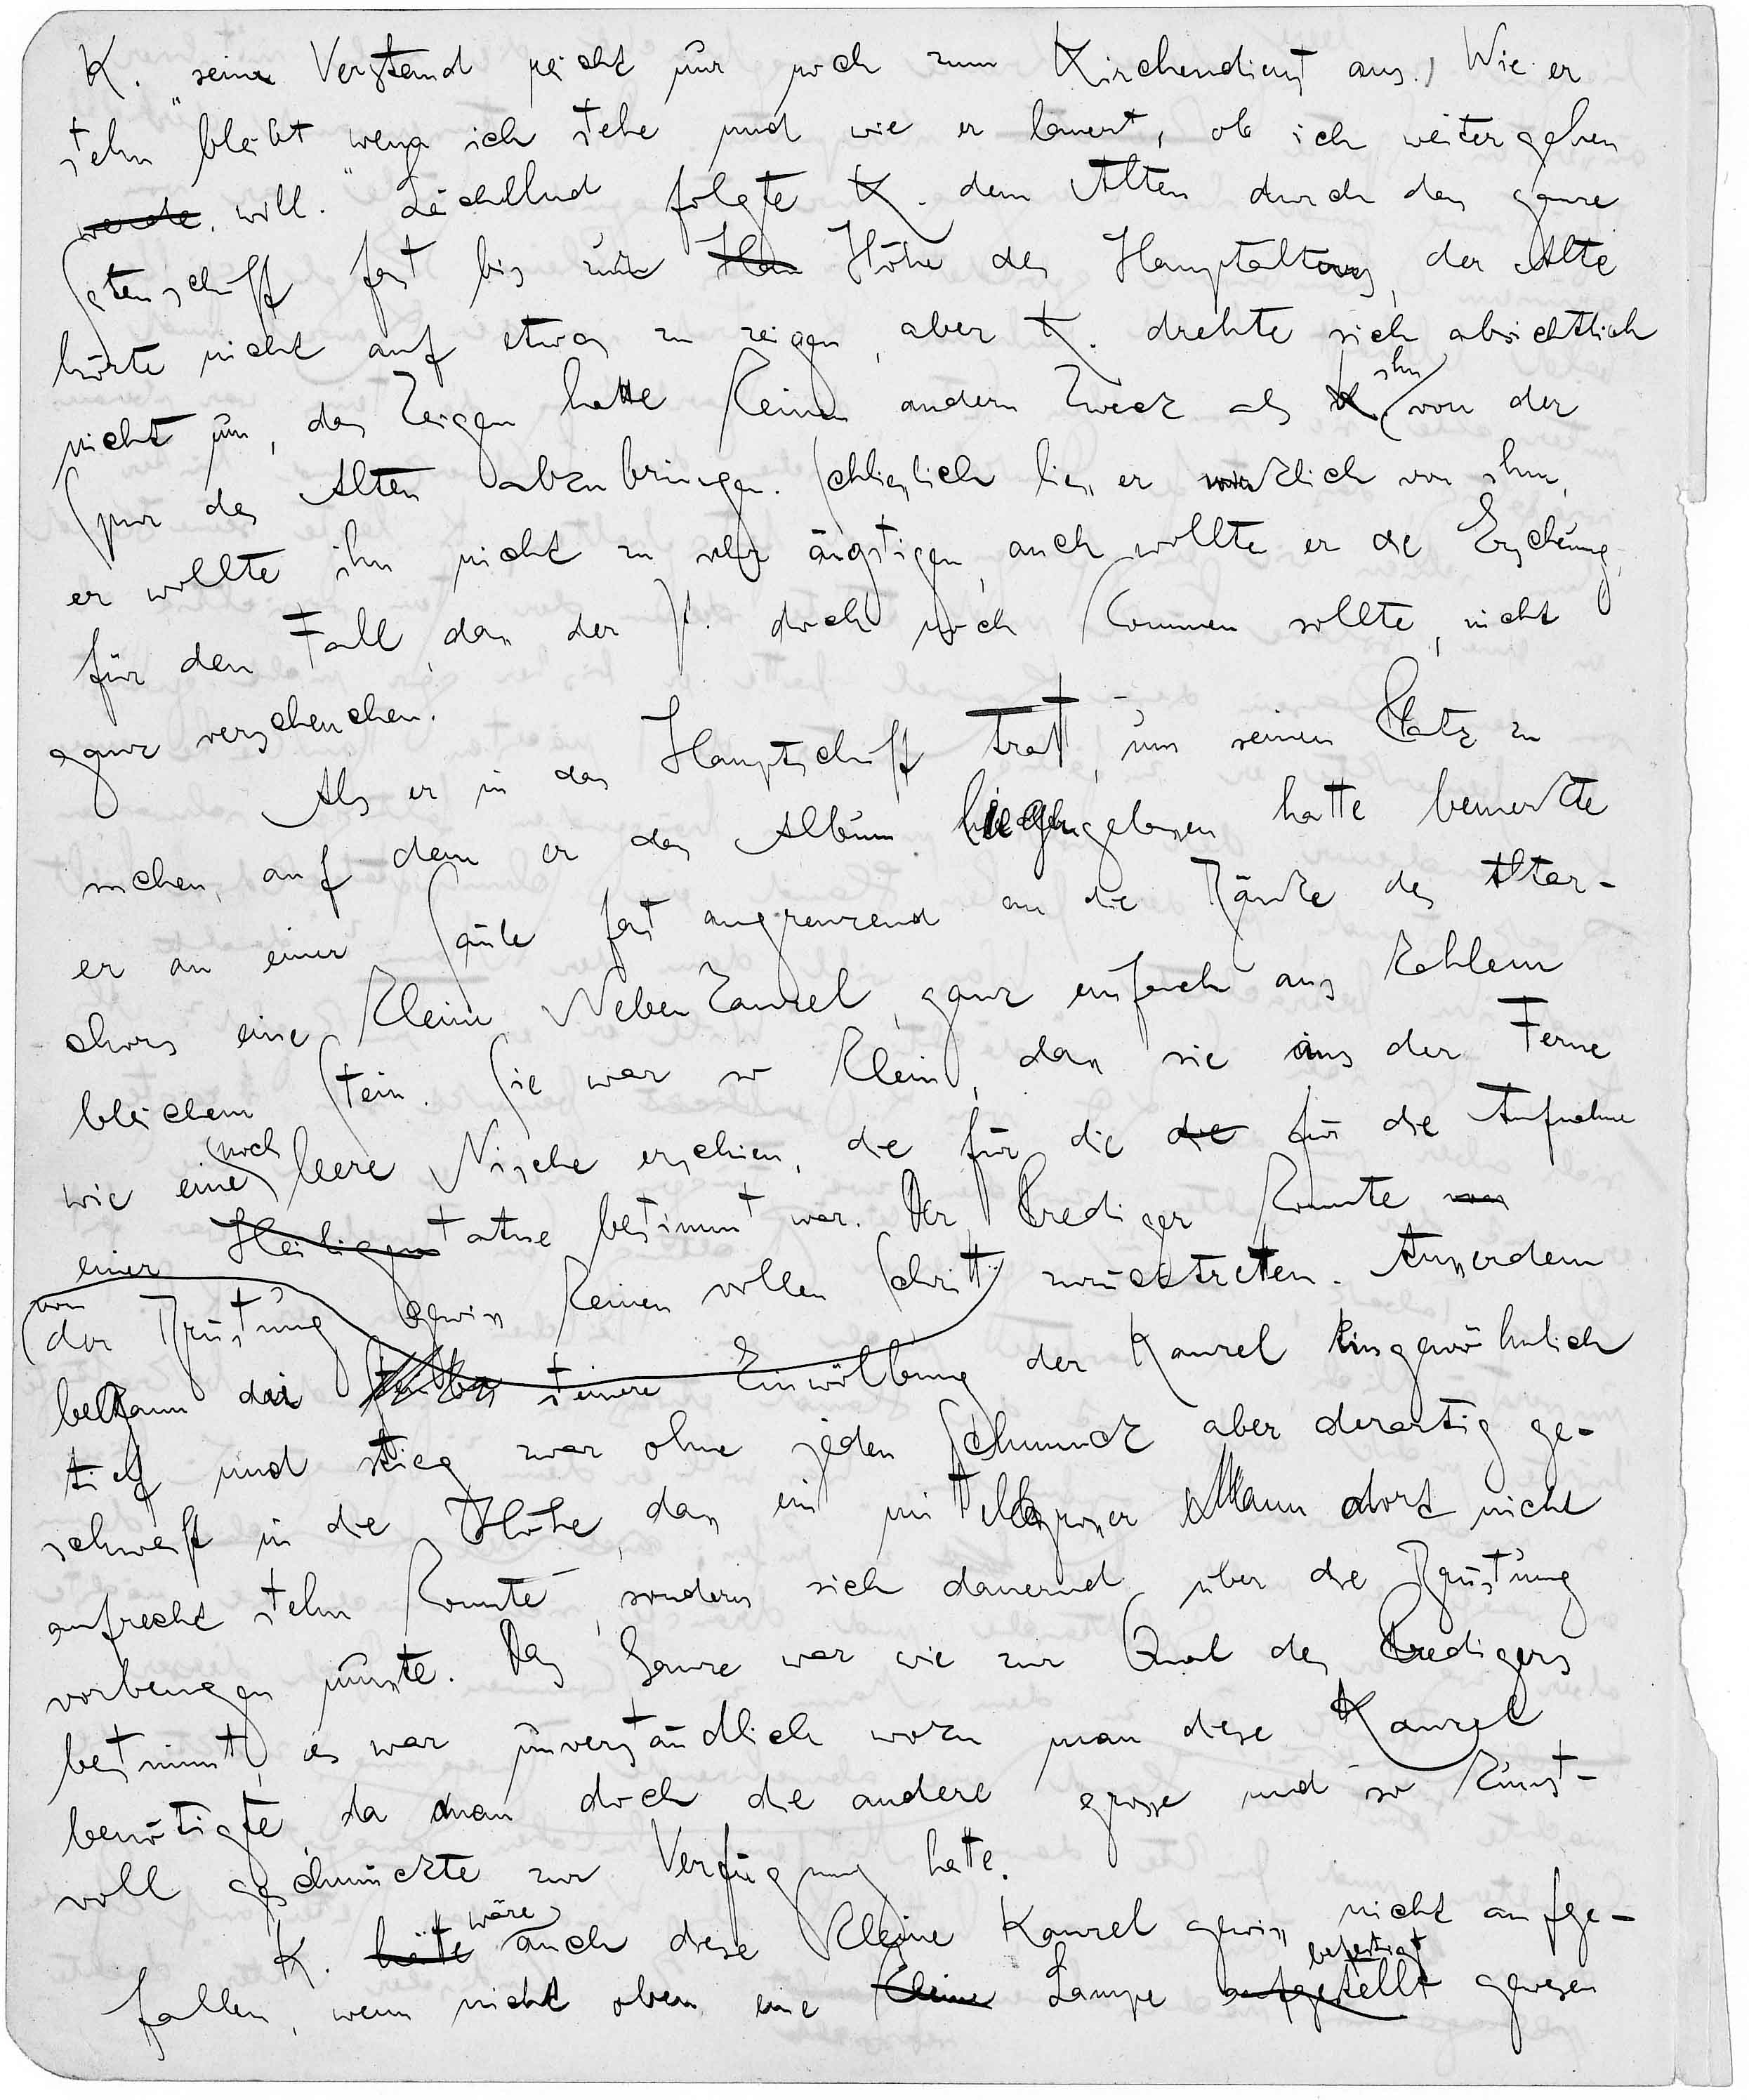 K. „sein Verstand reicht nur noch zum Kirchendienst aus. Wie er
stehn bleibt wenn ich stehe und wie er lauert, ob ich weitergehen
werde. will." Lächelnd folgte K. dem Alten durch das ganze
Seitenschiff fast bis zur Höhe des Hauptaltars, der Alte
hörte nicht auf etwas zu zeigen, aber K. drehte sich absichtlich
nicht um, das Zeigen hatte keinen andern Zweck als ihn von der
Spur des Alten abzubringen. Schliesslich liess er wirklich von ihm,
er wollte ihn nicht zu sehr ängstigen, auch wollte er die Erscheinung,
für den Fall, dass der I. doch noch kommen sollte, nicht
ganz verscheuchen.
Als er in das Hauptschiff trat, um seinen Platz zu
suchen, auf dem er das Album liegengelassen hatte bemerkte
er an einer Säule fast angrenzend an die Bänke des Altar-
chors eine kleine Nebenkanzel, ganz einfach aus kahlem
bleichem Stein. Sie war so klein, dass sie aus der Ferne
wie eine noch leere Nische erschien, die für die die für die Aufnahme
einer Heiligenstatue bestimmt war. Der Prediger konnte von
von der Brüstung gewiss keinen vollen Schritt zurücktreten. Ausserdem
begann die steinere Einwölbung der Kanzel ungewöhnlich
tief und stieg zwar ohne jeden Schmuck aber derartig ge-
schweift in die Höhe, dass ein mittelgrosser Mann dort nicht
aufrecht stehn konnte, sondern sich dauernd über die Brüstung
vorbeugen musste. Das Ganze war wie zur Qual des Predigers
bestimmt, es war unverständlich wozu man diese Kanzel
benötigte, da man doch die andere grosse und so kunst-
voll geschmückte zur Verfügung hatte.
K. hätte wäre auch diese kleine Kanzel gewiss nicht aufge-
fallen, wenn nicht oben eine kleine Lampe aufgestellt befestigt gewesen